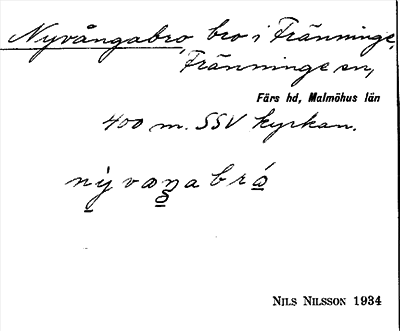 Nyvångabro, bro i Fränninge,
Fränninge sn,
Färs hd, Malmöhus län
400 m. SSV kyrkan.
Nils Nilsson 1934